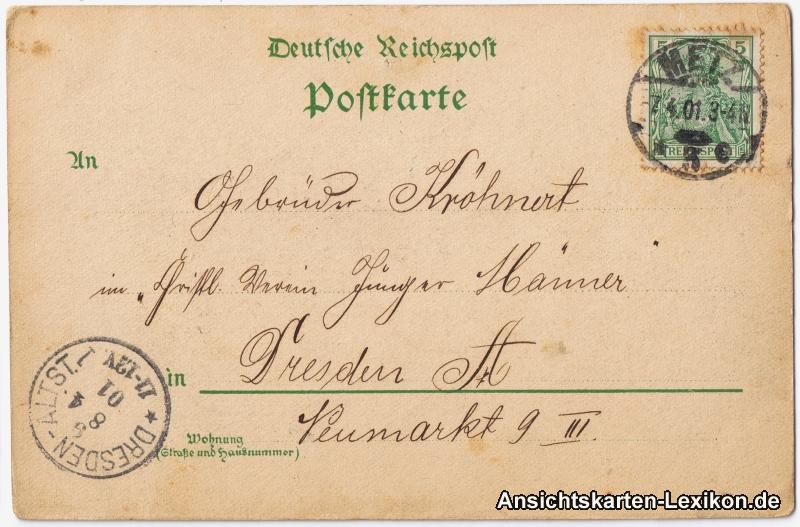 Deutsche Reichspost
Postkarte
5 5
METZ
7.4.01.3-4N
REICHSPOST
3
An
Gebrüder Kröhnert
im „Christl. Verein Junger Männer"
in Dresden A
Neumarkt 9 III.
Wohnung
(Straße und Hausnummer)
DRESDEN-ALTST. 1
11-12V.
01
4
8
Ansichtskarten-Lexikon.de